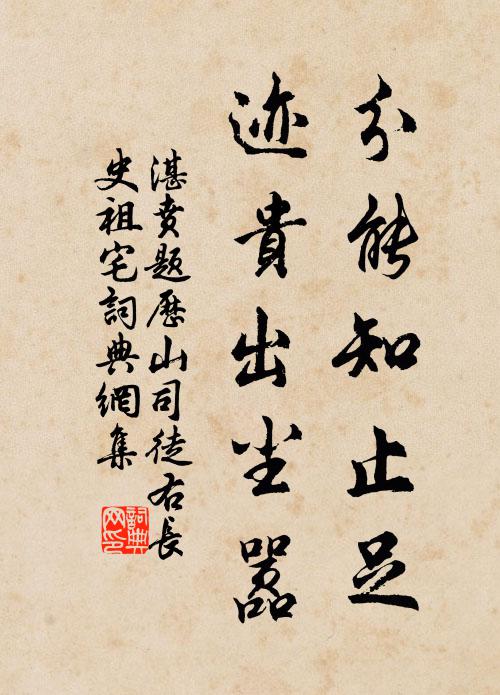 分能知止足
迹貴出尘嚣
湛賁題歷山司徒右長
史祖宅詞典網集
詞典
网印